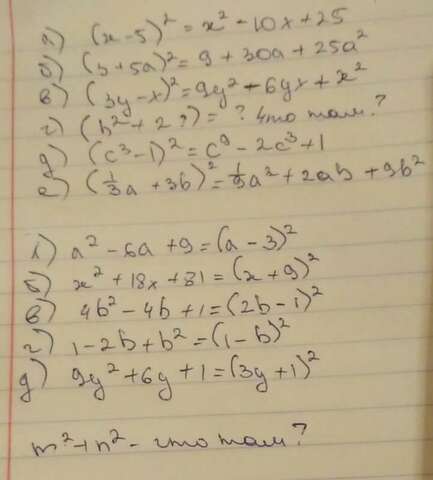 а) (x-5)² = x² - 10x + 25
б) (3+5a)² = 9 + 30a + 25a²
в) (3y-x)² = 9y² - 6yx + x²
г) (b² + 2?) = ? что там?
д) (c³-1)² = c⁹ - 2c³ + 1
е) (⅓a + 3b)² = ⅑a² + 2ab + 9b²
а² - 6a + 9 = (a-3)²
б) x² + 18x + 81 = (x+9)²
в) 4b² - 4b + 1 = (2b-1)²
г) 1 - 2b + b² = (1-b)²
д) 9y² + 6y + 1 = (3y+1)²
m² + n² - что там?